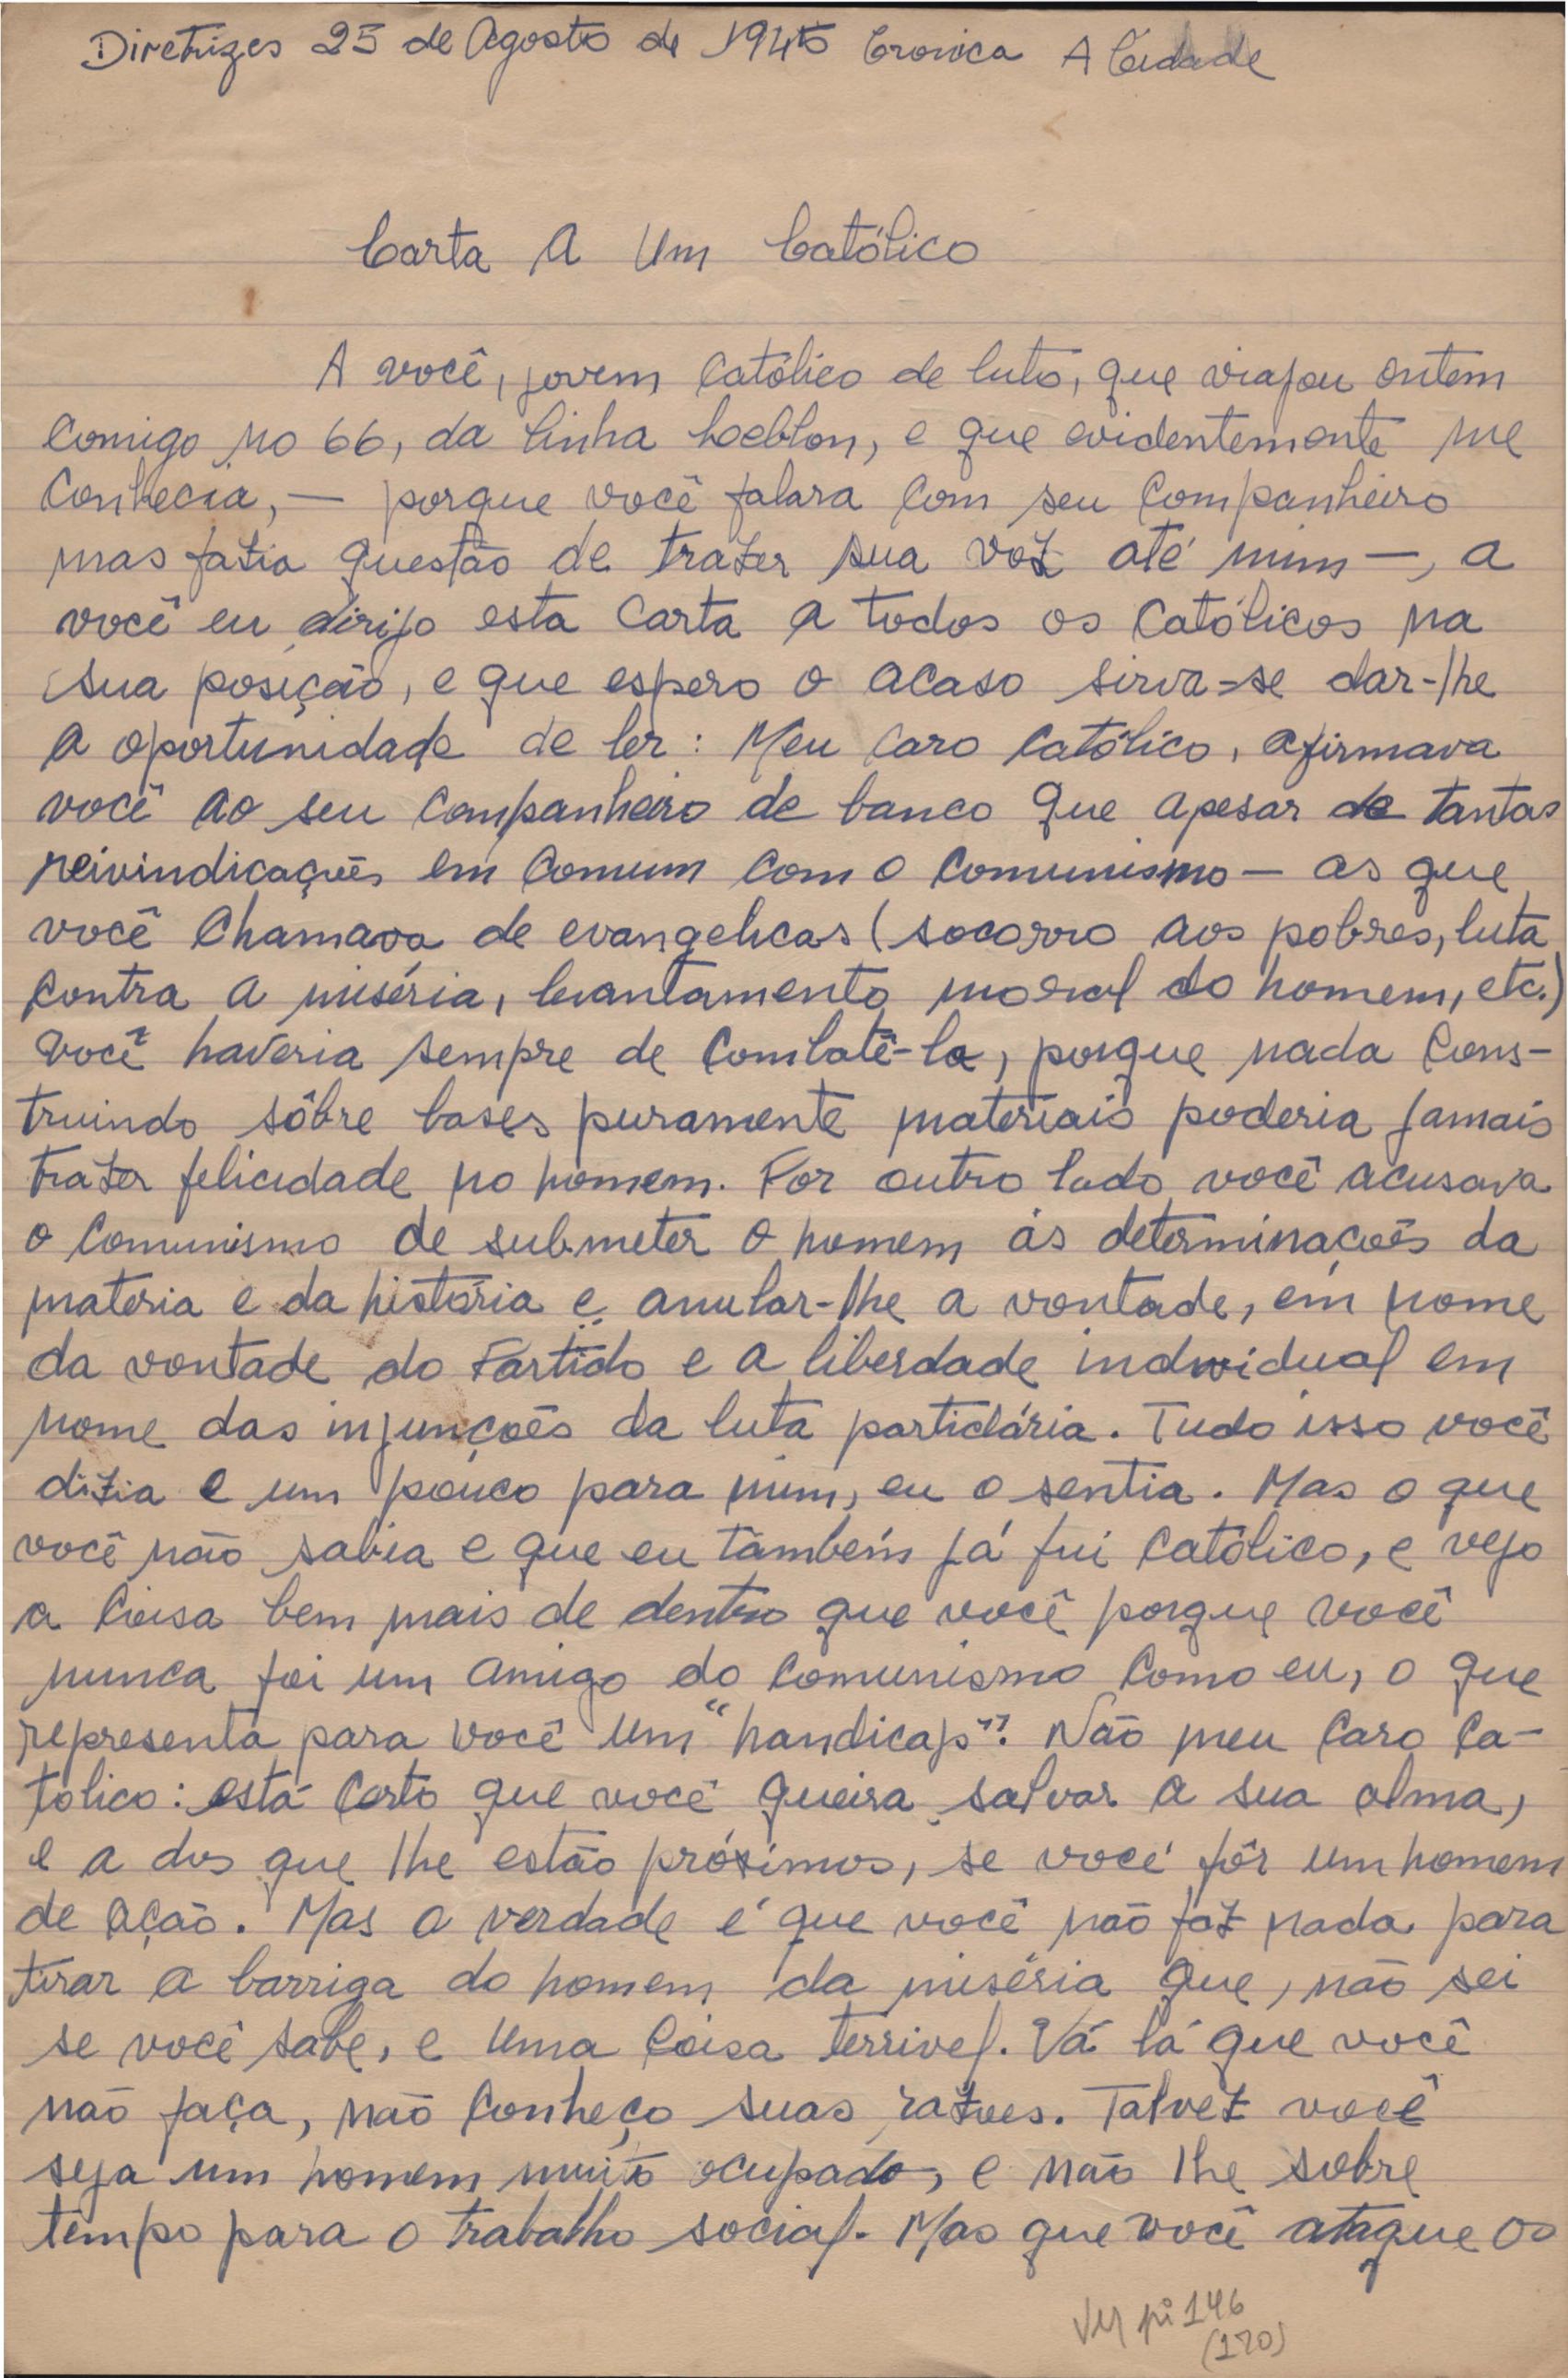 Diretrizes 25 de Agosto de 1945 Cronica A Cidade
Carta A Um Católico
A você, jovem Católico de luto, que viajou ontem
Comigo no 66, da linha Leeblon, e que evidentemente me
Conhecia, — porque você falara Com seu Companheiro
mas fazia questão de trazer sua voz até mim —, a
você eu dirijo esta Carta a todos os Católicos na
sua posição, e que espero o acaso sirva-se dar-lhe
a oportunidade de ler: Meu caro Católico, afirmava
você ao seu Companheiro de banco que apesar de tantas
reivindicações em Comum Com o Comunismo — as que
você Chamava de evangelicas (socorro aos pobres, luta
Contra a miséria, levantamento moral do homem, etc.)
você haveria sempre de Combatê-la, porque nada Cons-
truindo sôbre bases puramente materiais poderia jamais
trazer felicidade no homem. Por outro lado você acusava
o Comunismo de submeter o homem ás determinações da
materia e da história e anular-lhe a vontade, em nome
da vontade do Partido e a liberdade individual em
nome das injunções da luta partidária. Tudo isso você
dizia e um pouco para mim, eu o sentia. Mas o que
você não sabia e que eu também já fui Católico, e vejo
a Coisa bem mais de dentro que você porque você
nunca foi um amigo do Comunismo Como eu, o que
representa para você um "handicap". Não meu Caro Ca-
tolico: está Certo que você queira salvar a sua alma,
e a dos que lhe estão próximos, se você fôr um homem
de ação. Mas a verdade é que você não faz nada para
tirar a barriga do homem da miséria que, não sei
se você sabe, e uma Coisa terrivel. Vá lá que você
não faça, não Conheço suas razoes. Talvez você
seja um homem muito ocupado, e não lhe sobre
tempo para o trabalho social. Mas que você ataque os
Ver pi 146
(170)